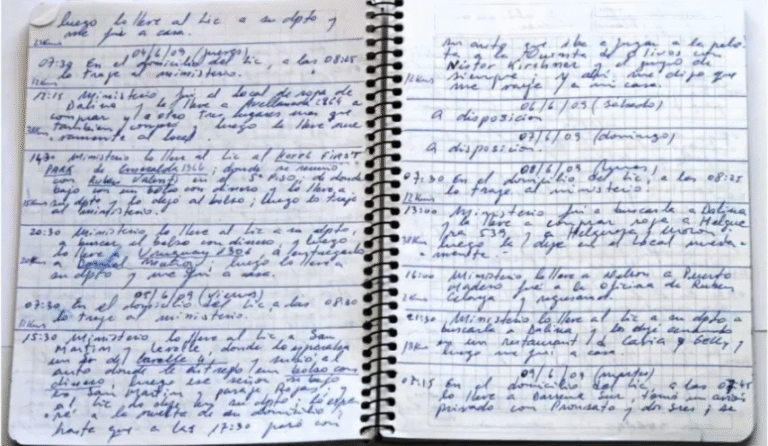 luego lo lleve al Lic a su dpto y
me fui a casa.
04/6/09 (jueves)
07:30 En el domicilio del Lic, a las 08:45
lo traje al ministerio.
12:15 Ministerio fui al local de ropa de
Dalina y la lleve a Avellaneda
comprar y a otro tres lugares mas que
tambien compró y luego la lleve nue-
vamente al local
Ministerio lo lleve al Lic al Hotel FIRST
PARK de Esmeralda 1366; donde se reunió
con Ruben en el 5º Piso, de donde
bajo con un bolso con dinero y lo lleve a
su dpto y lo dejó al bolso; luego lo traje
al ministerio.
20:30 Ministerio lo lleve al Lic a su dpto,
y buscar el bolso con dinero y luego
lo lleve a Uruguay 1306 a entregarlo
a Daniel Muñoz; luego lo lleve a
su dpto y me fui a casa.
05/6/09 (viernes)
07:30 En el domicilio del Lic, a las 08:30
lo traje al ministerio.
15:30 Ministerio lo lleve al Lic, a San
Martin y Lavalle, donde lo esperaba
un Sr de Lavalle y subió al
auto donde le entregó un bolso con
dinero, luego ese señor se bajo
en San Martin y
al Lic lo deje en su dpto; lo espe-
ré a la vuelta de su domicilio
hasta que a las 17:30 pasó con
su auto que iba a jugar a la pelo-
ta a la Quinta de Olivos con
Nestor Kirchner y el grupo de
siempre; y ahi me dijo que
me vaya a mi casa.
06/6/09 (sabado)
A disposicion
07/6/09 (domingo)
A disposicion.
08/6/09 (lunes)
07:30 En el domicilio del Lic, a las 08:25
lo traje al ministerio.
13:00 Ministerio fui a buscarla a Dalina
y la lleve a comprar ropa a Helgue-
ra 539 y a Helguera y Moron;
luego la deje en el local nueva-
mente.
16:00 Ministerio lo lleve a Nelson a Puerto
Madero fui a la oficina de Ruben
y regresamos.
21:30 Ministerio lo lleve al Lic a su dpto a
buscarla a Dalina y los deje cenando
en un restaurant de Cabia y Gelly y
luego me fui a casa.
09/6/09 (martes)
07:15 En el domicilio del Lic, a las 07:45
lo lleve a Barrena Sur, tomó un avion
privado con Pronsato y dos Sres; se